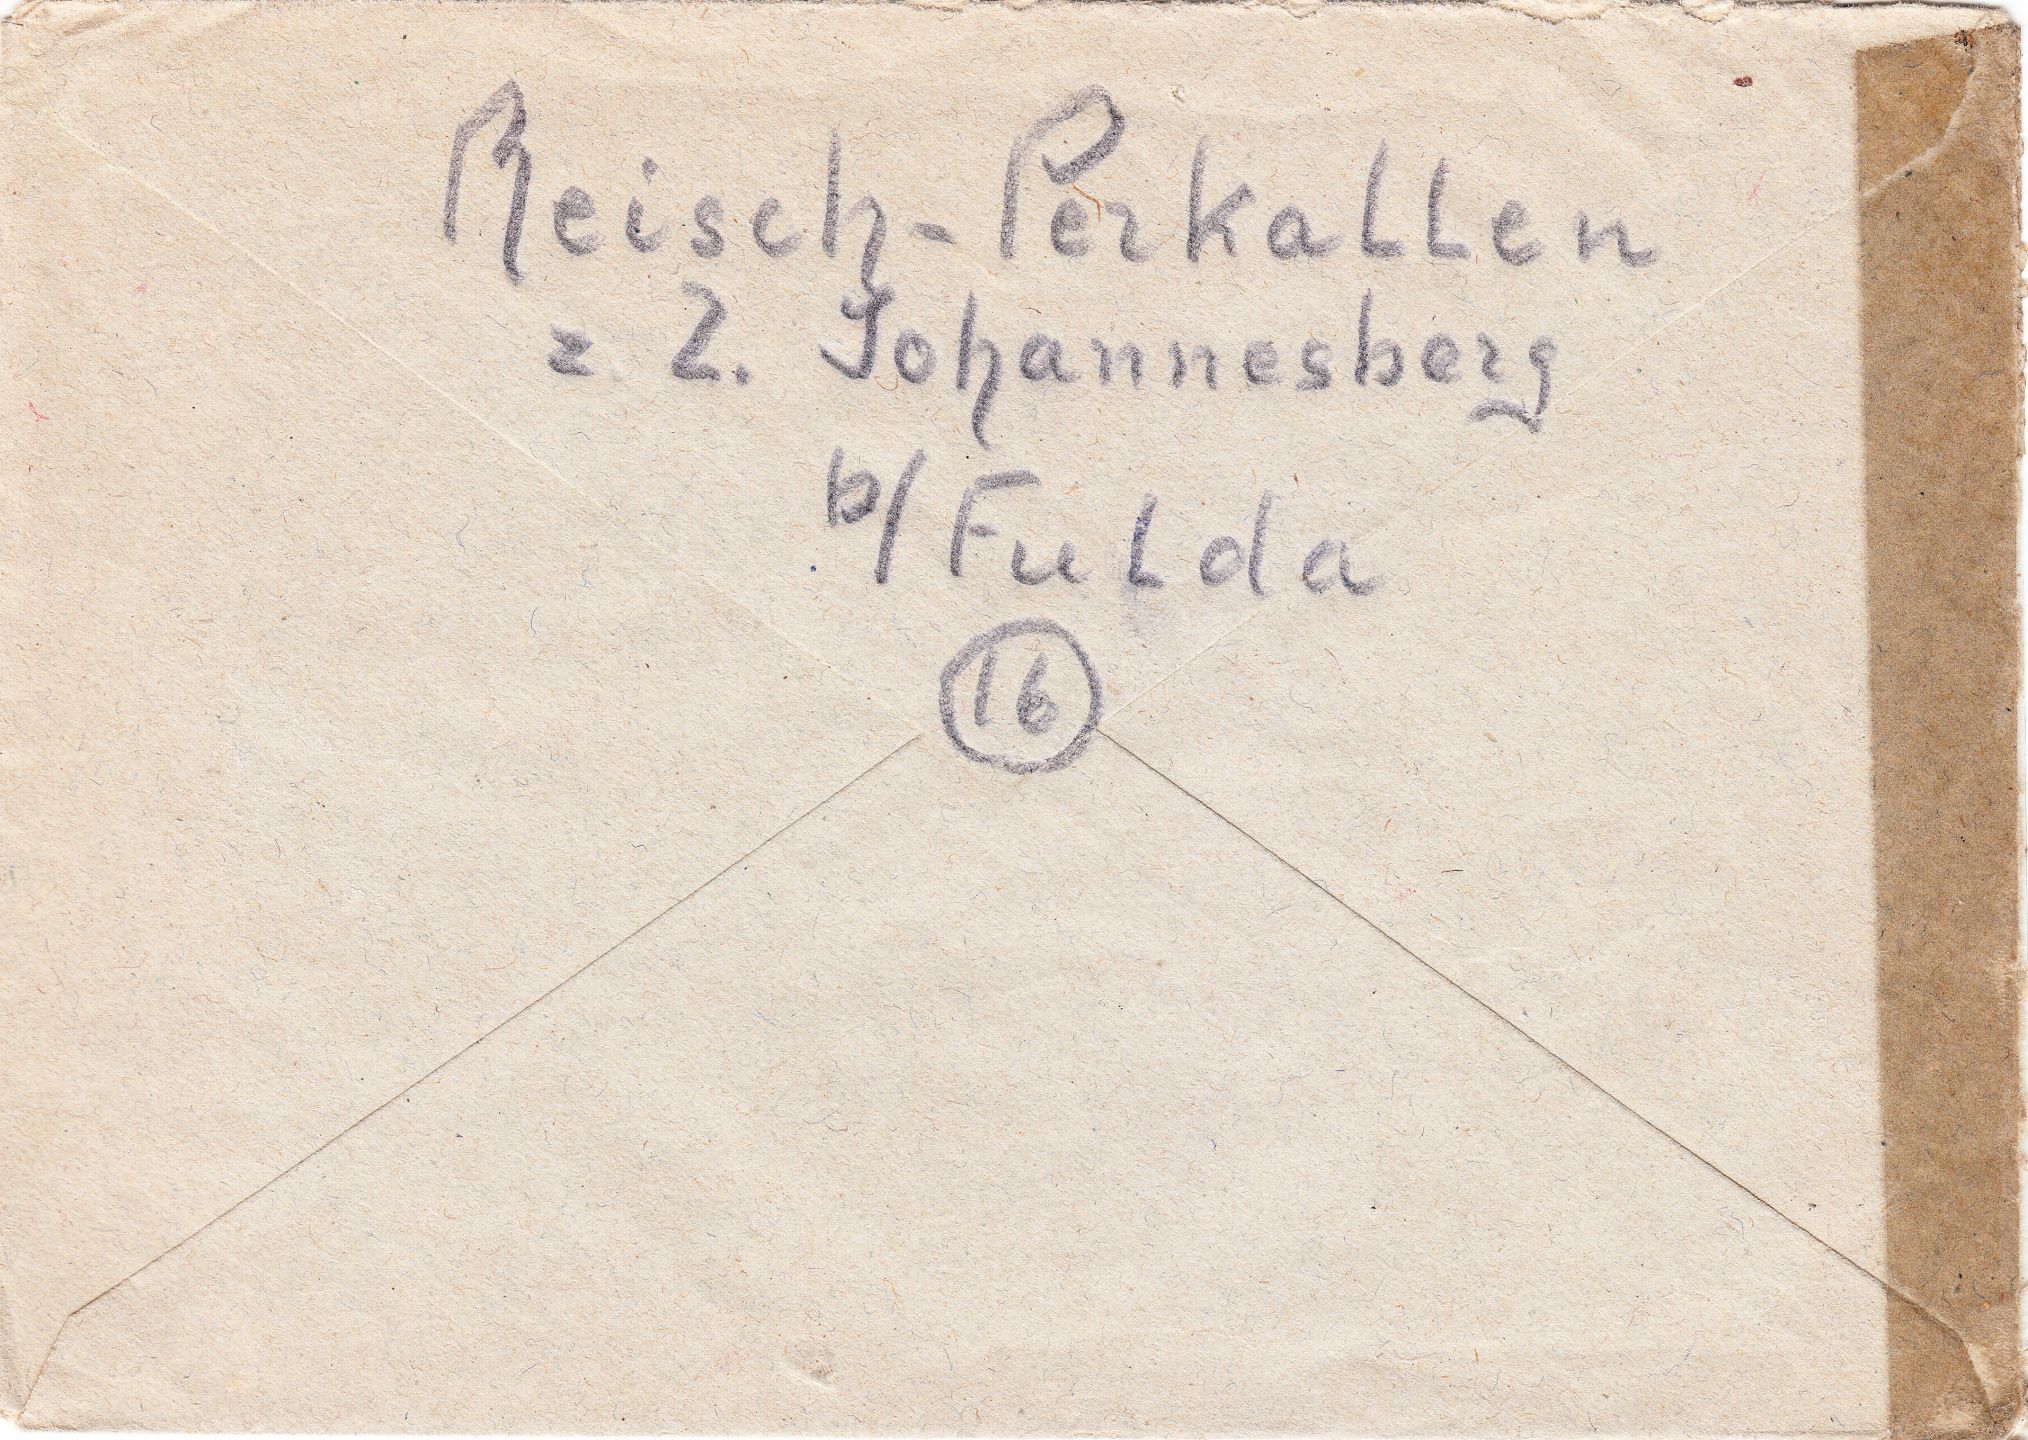 Reisch-Perkallen
z Z. Johannesberg
b/Fulda
16